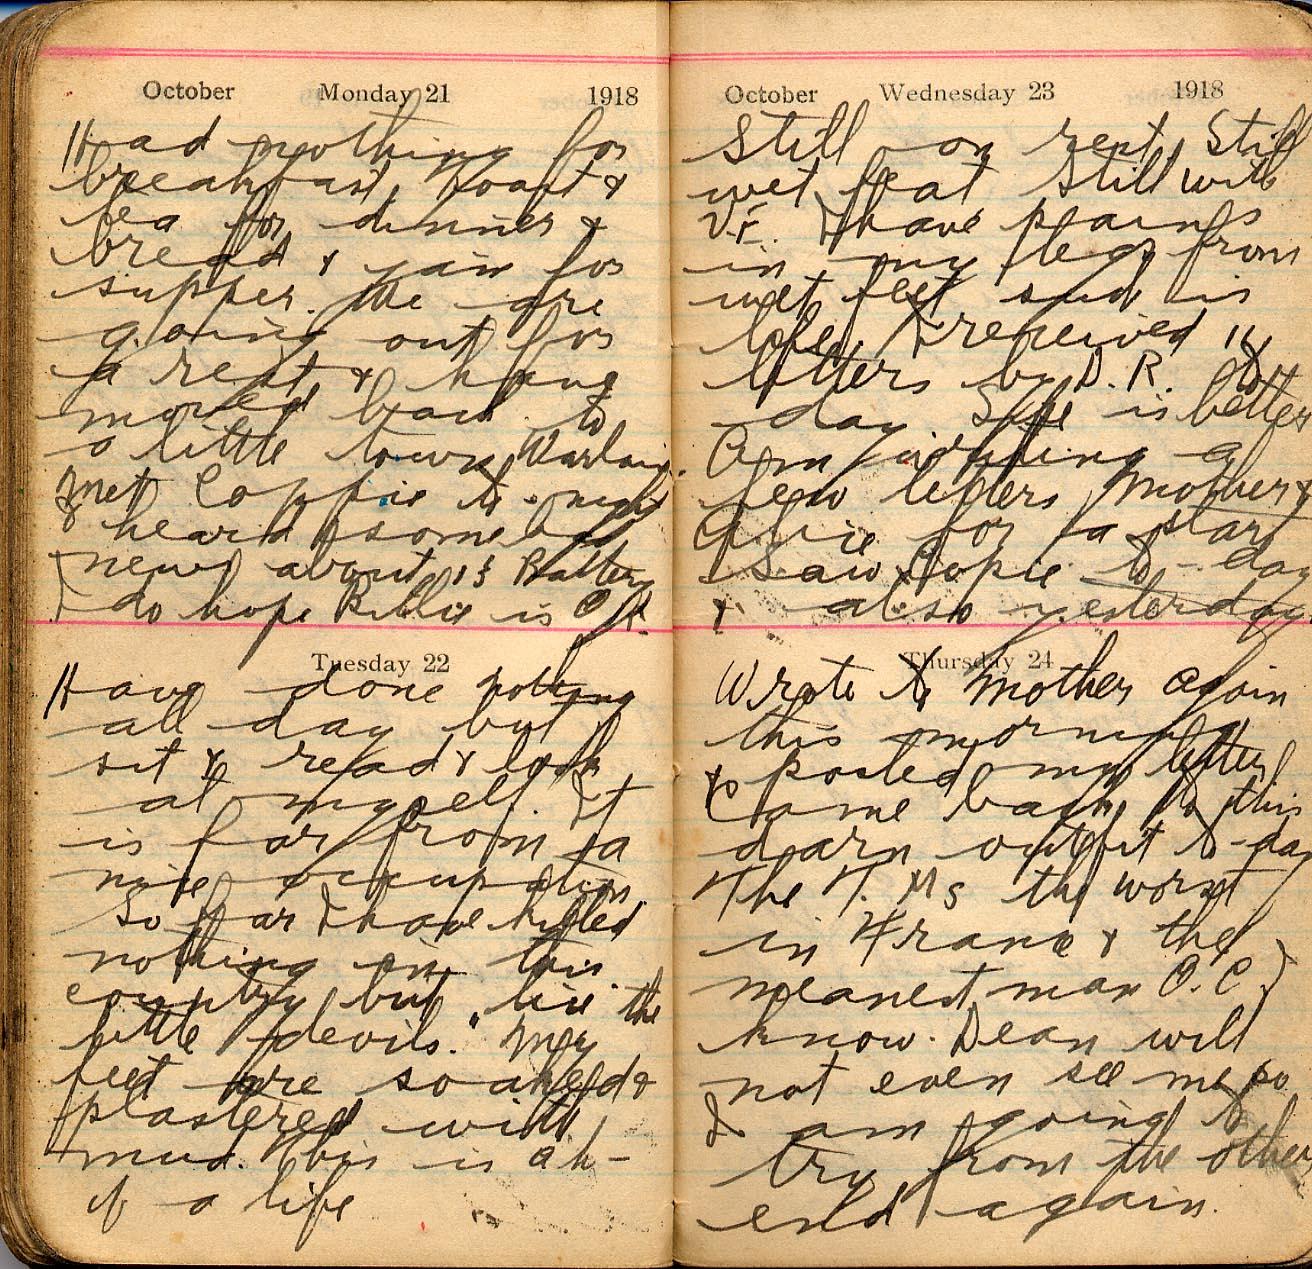 October Monday 21 1918
Had nothing for
breakfast, toast &
tea for dinner &
bread & jam for
supper. We are
going out for
a rest, & have
moved back to
a little town,
Met Coppie to-night
& heard some bad
news about 's Battery
I do hope Billie is O.K.
Tuesday 22
Have done nothing
all day but
sit & read & look
at myself. It
is far from a
nice occupation.
So far I have killed
nothing in this
country but lice "the
little devils." My
feet are soaked &
plastered with
mud. This is a h—
of a life
October Wednesday 23 1918
Still on rest, Still
wet feat Still with
V.F. I have pains
in my legs from
wet feet and is
I received 11
letters by D.R. to-
day. She is better
Am a
few letters Mother &
Alice for a start
I Saw Copie to-day
& also yesterday.
Thursday 24
Wrote to Mother again
this morning
& posted my letter
Came back to this
darn outfit to-day
The T.Ms the worst
in France & the
meanest man O.C. I
know. Dean will
not even see me so
I am going to
try from the other
end again.